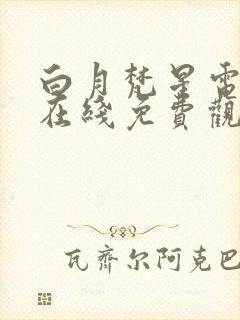 白月梵星電
在綫免費觀
瓦齊尔阿克巴